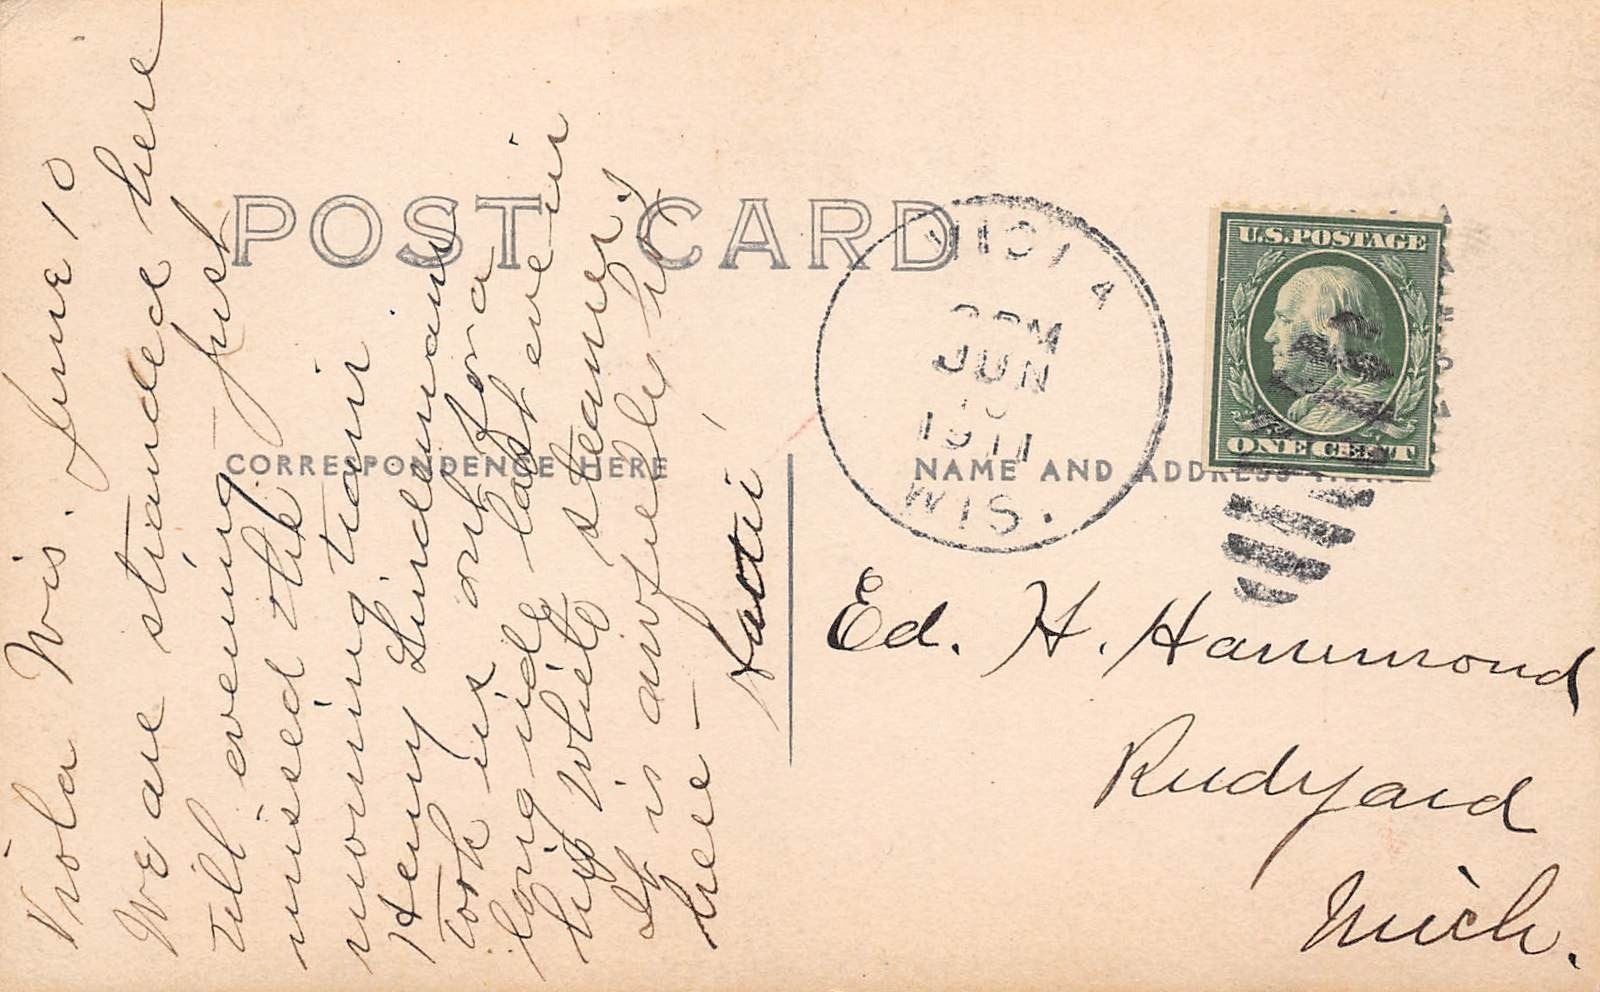 POST CARD
CORRESPONDENCE HERE
NAME AND ADDRESS HERE
Viola Wis. June 10
We are stranded here
till evening just
missed the
morning train
Henry Lindemans
took us out for a
long ride last eve in
his White steamer.
It is awfully hot
here –
VIOLA
PM
JUN
10
1911
WIS.
U.S. POSTAGE
ONE CENT
Ed. H. Hammond
Rudyard
Mich.